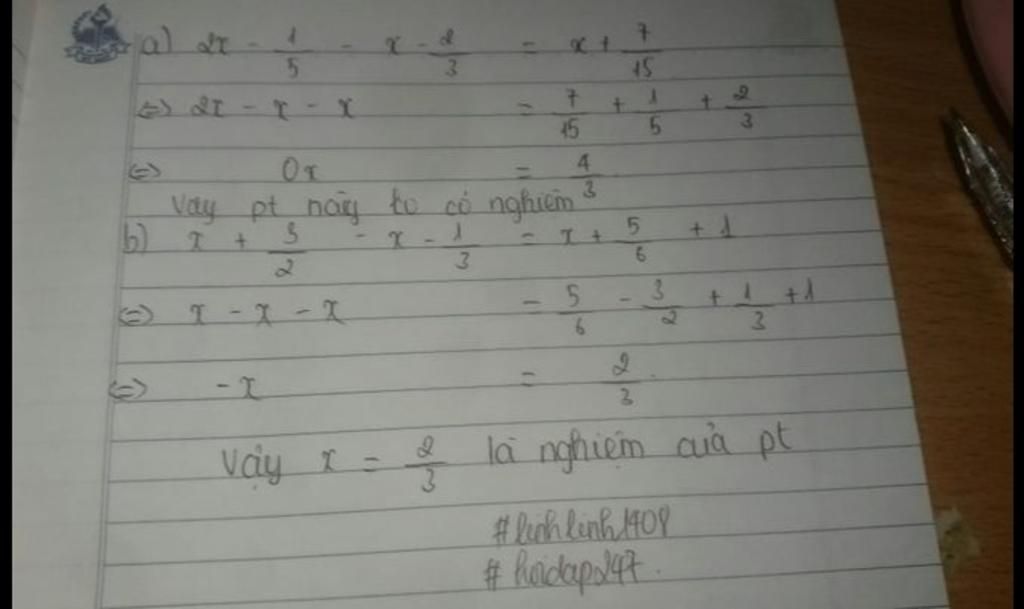 a) 2x - 1/5 - x - 2/3 = x + 7/15
<=> 2x - x - x = 7/15 + 1/5 + 2/3
<=> 0x = 4/3
Vậy pt này ko có nghiệm
b) x + 3/2 - x - 1/3 = x + 5/6 + 1
<=> x - x - x = 5/6 - 3/2 + 1/3 + 1
<=> -x = 2/3
Vậy x = 2/3 là nghiệm của pt
#linhlinh1408
#hoidap247.